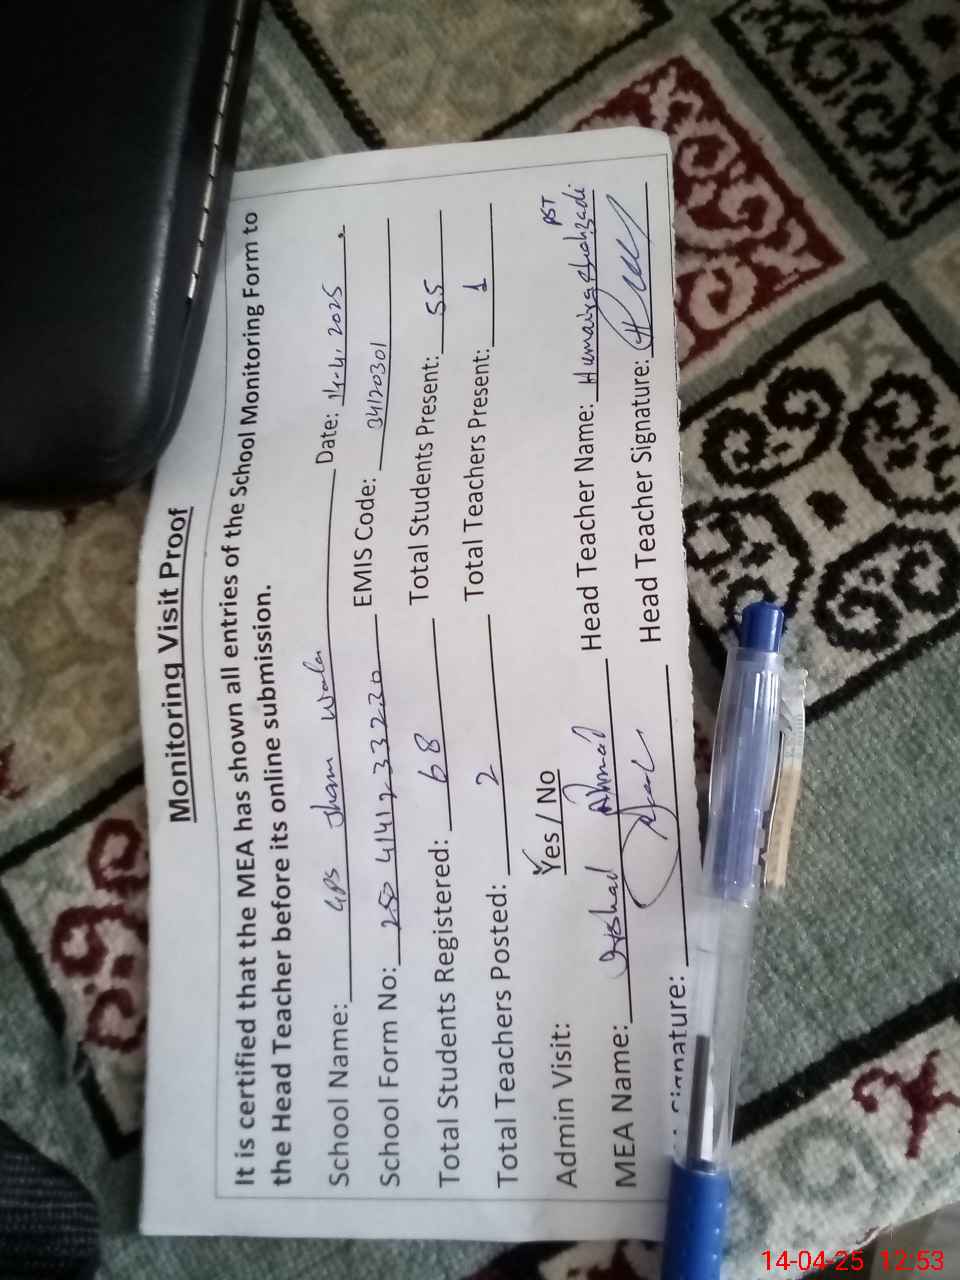 Monitoring Visit Proof
It is certified that the MEA has shown all entries of the School Monitoring Form to
the Head Teacher before its online submission.
School Name: GPS Jham Wala Date: 14-4-2025
School Form No: 4141233230 EMIS Code: 34120301
Total Students Registered: 68 Total Students Present: 55
Total Teachers Posted: 2 Total Teachers Present: 1
Admin Visit: Yes / No
MEA Name: Arshad Ahmad Head Teacher Name: Humaira Shahzadi PST
Signature: Head Teacher Signature:
14-04-25 12:53